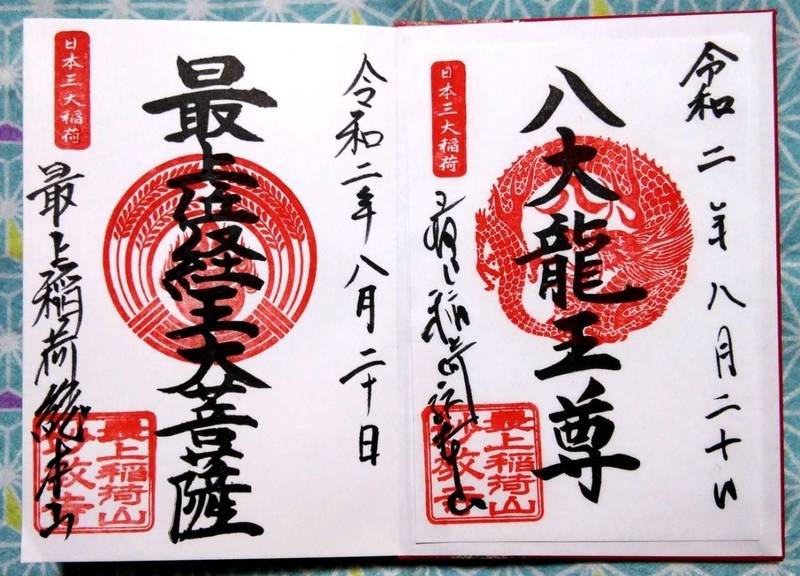 令和二年八月二十日
八大龍王尊
日本三大稲荷
最上稲荷総本山
最上稲荷山
妙教寺
令和二年八月二十日
最上位経王大菩薩
日本三大稲荷
最上稲荷総本山
最上稲荷山
妙教寺